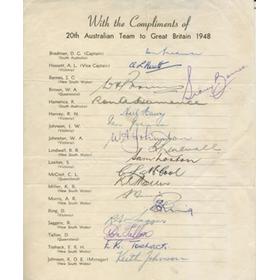 With the Compliments of
20th Australian Team to Great Britain 1948
Bradman, D. G. (Captain)
(South Australia)
Hassett, A. L. (Vice Captain)
(Victoria)
Barnes, S. G.
(New South Wales)
Brown, W. A.
(Queensland)
Hamence, R.
(South Australia)
Ron A Hamence
Harvey, R. N.
(Victoria)
Neil Harvey
Johnson, I. W.
(Victoria)
Johnston, W. A.
(Victoria)
Lindwall, R. R.
(New South Wales)
Loxton, S.
(Victoria)
Sam Loxton
McCool, C. L.
(Queensland)
C L McCool
Miller, K. R.
(New South Wales)
Morris, A. R.
(New South Wales)
Ring, D.
(Victoria)
Saggers, R.
(New South Wales)
R A Saggers
Tallon, D.
(Queensland)
Don Tallon
Toshack, E. R. H.
(New South Wales)
E. R. Toshack
Johnson, K. O. E. (Manager)
(New South Wales)
Keith Johnson